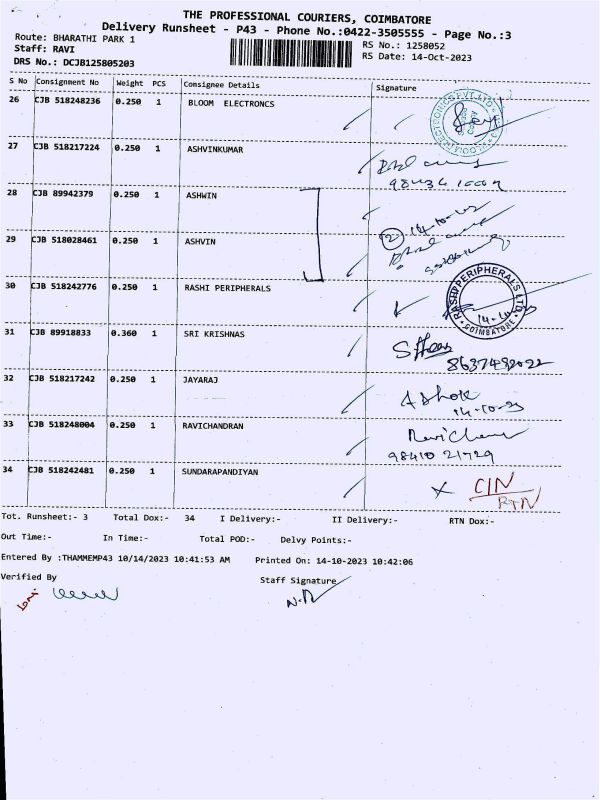 THE PROFESSIONAL COURIERS, COIMBATORE
Delivery Runsheet - P43 - Phone No.:0422-3505555 - Page No.:3
Route: BHARATHI PARK 1
RS No.: 1258052
Staff: RAVI
RS Date: 14-Oct-2023
DRS No.: DCJB125805203
S No Consignment No Weight PCS Consignee Details Signature
26 CJB 518248236 0.250 1 BLOOM ELECTRONCS
27 CJB 518217224 0.250 1 ASHVINKUMAR
28 CJB 89942379 0.250 1 ASHWIN
2
29 CJB 518028461 0.250 1 ASHVIN
30 CJB 518242776 0.250 1 RASHI PERIPHERALS
RASHI PERIPHERALS LTD. COIMBATORE
31 CJB 89918833 0.360 1 SRI KRISHNAS
32 CJB 518217242 0.250 1 JAYARAJ
Ashok
14-10-23
33 CJB 518248004 0.250 1 RAVICHANDRAN
98410 21729
34 CJB 518242481 0.250 1 SUNDARAPANDIYAN
X CIN
RTN
Tot. Runsheet:- 3 Total Dox:- 34 I Delivery:- II Delivery:- RTN Dox:-
Out Time:- In Time:- Total POD:- Delvy Points:-
Entered By :THAMMEMP43 10/14/2023 10:41:53 AM Printed On: 14-10-2023 10:42:06
Verified By Staff Signature